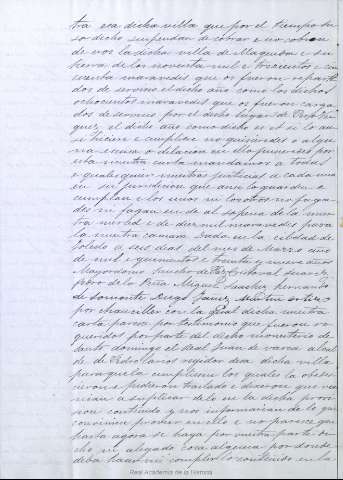 tra esa dicha villa que por el tiempo su
so dicho suspendan de cobrar e no cobren
de vos la dicha villa de Maqueda e su
tierra de los noventa mil e trescientos e cin
cuenta maravedis que os fueron reparti
dos de servicio el dicho año como los dichos
ochocientos maravedis que os fueron carga
dos de servicio por el dicho lugar de
quez el dicho año como dicho es e si lo an
si hicieren e cumplieren no quisieredes o algu
na escusa o dilacion en ello pusieredes por
esta nuestra carta mandamos a todas
e qualesquier nuestras justicias a cada una
en su jurisdicion que ansi lo guarden e
cumplan e los unos ni los otros no faga
des ni fagan ende al so pena de la nues
tra merced e de diez mil maravedis para
la nuestra camara. Dada en la cibdad de
Toledo a seis dias del mes de Marzo año
de mil e quinientos e treinta y nueve años
Mayordomo Sancho de Paz Cristoval Suarez
Pedro de la Peña Miguel Sanchez Hernando
de Somonte Diego Yanez Martin
por chanciller con la qual dicha nuestra
carta parece por testimonio que fueron re
queridos por parte del dicho monesterio de
santo domingo el Real Juan de alcal
de de Pedro Llanos regidor desa dicha villa
para que la cumpliesen los quales la obede
cieron e pidieron traslado e dixeron que ve
nian a suplicar de lo en la dicha provi
sion contenido y nos informarian de lo que
convenia proveer en ello e no parece que
hasta agora se haya por vuestra parte di
cho ni alegado cosa alguna por donde
deba de cumplir lo contenido en la
Real Academia de la Historia